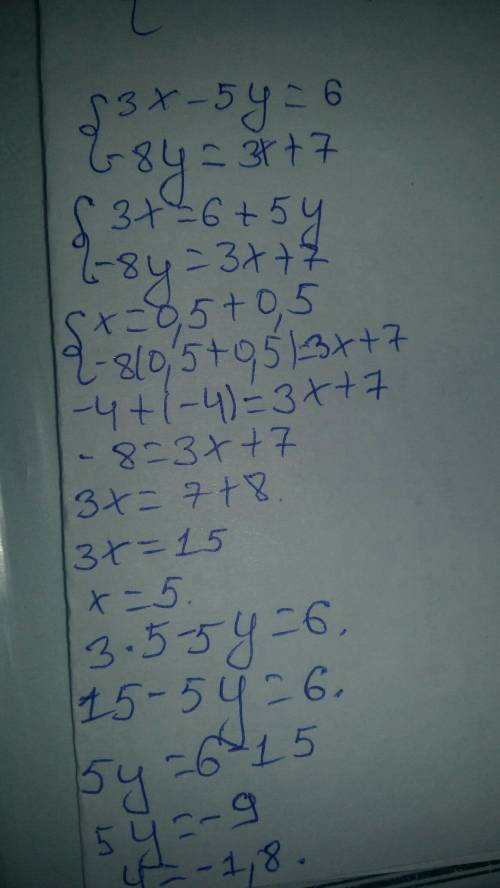 { 3x - 5y = 6
-8y = 3x + 7
{ 3x = 6 + 5y
-8y = 3x + 7
{ x = 0,5 + 0,5
-8(0,5 + 0,5) = 3x + 7
-4 + (-4) = 3x + 7
-8 = 3x + 7
3x = 7 + 8.
3x = 15
x = 5.
3 · 5 - 5y = 6.
15 - 5y = 6.
5y = 6 - 15
5y = -9
y = -1,8.